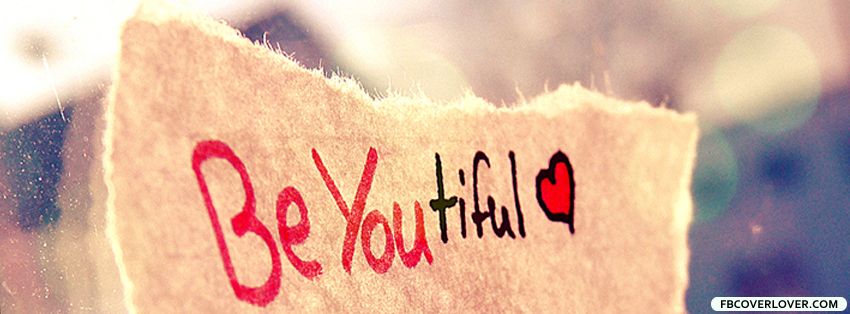 BeYoutiful
FBCOVERLOVER.COM